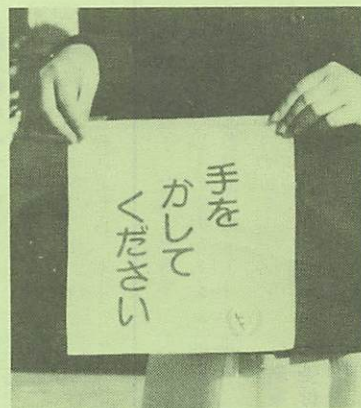 手を
かして
ください